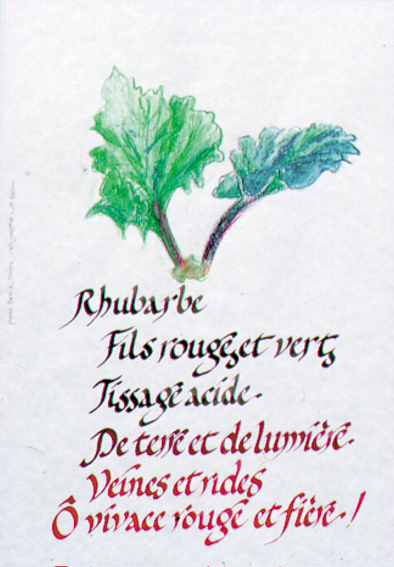 Rhubarbe
Fils rouges et verts
Tissage acide.
De terre et de lumière.
Veines et rides
Ô vivace rouge et fière. !